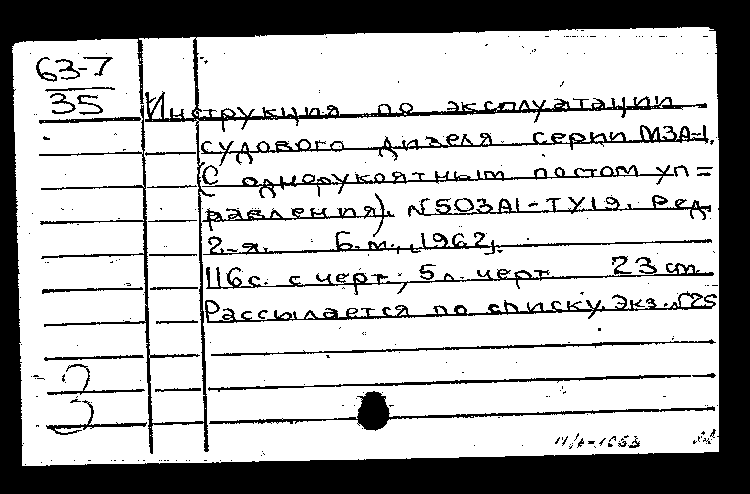 63-7
35
Инструкция по эксплуатации
судового дизеля серии М3А-1.
(С однорукоятным постом уп=
равления). N[503А1-ТУ19. Ред.
2-я. Б.м., [1962].
116с. с черт.; 5 л. черт 23 см
Рассылается по списку. Экз. N[25
3